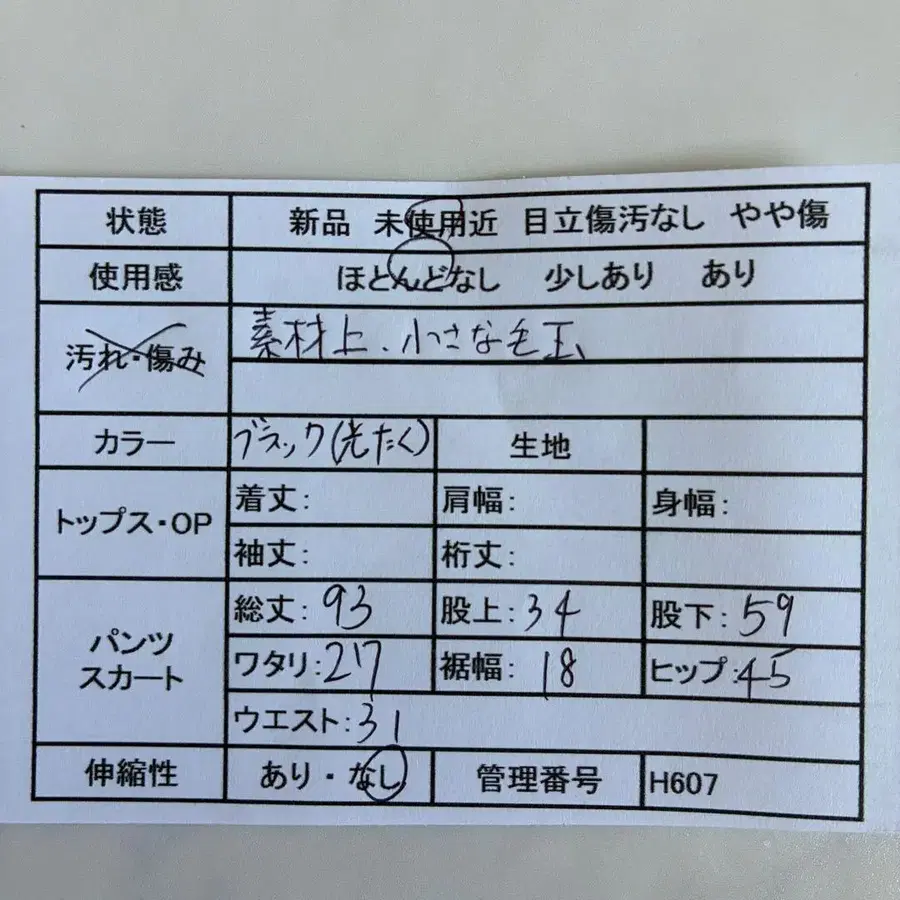 状態 新品 未使用近 目立傷汚なし やや傷
使用感 ほとんどなし 少しあり あり
汚れ・傷み 素材上、小さな毛玉
カラー ブラック(光たく) 生地
トップス・OP 着丈: 肩幅: 身幅:
袖丈: 裄丈:
パンツ スカート 総丈:93 股上:34 股下:59
ワタリ:27 裾幅:18 ヒップ:45
ウエスト:31
伸縮性 あり・なし 管理番号 H607